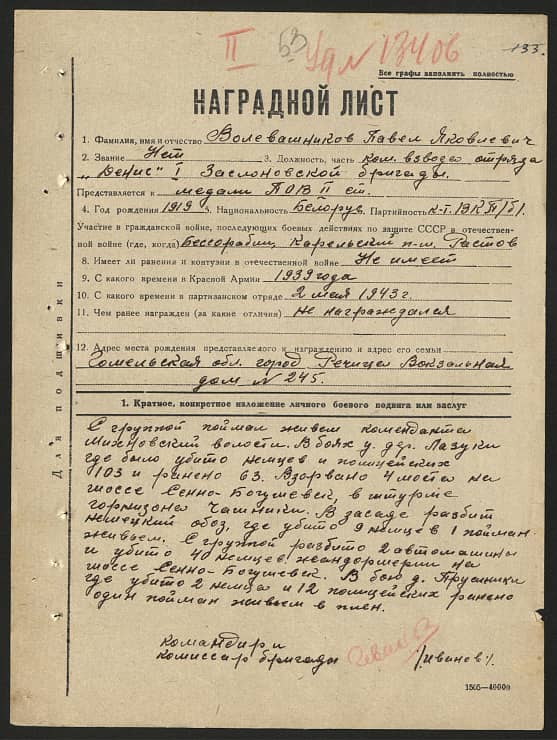 II
53
Уд № 13406
133.
Все графы заполнять полностью
НАГРАДНОЙ ЛИСТ
1. Фамилия, имя и отчество Волевашников Павел Яковлевич
2. Звание Нет 3. Должность, часть ком. взвода отряда
„Денис" I Заслоновской бригады.
Представляется к медали ПОВ II ст.
4. Год рождения 1919 5. Национальность Белорус Партийность к-т. ВКП/б/.
Участие в гражданской войне, последующих боевых действиях по защите СССР в отечествен-
ной войне (где, когда) Бессарабия, Карельский п-м, Растов
8. Имеет ли ранения и контузии в отечественной войне Не имеет
9. С какого времени в Красной Армии 1939 года
10. С какого времени в партизанском отряде 2 мая 1943 г.
11. Чем ранее награжден (за какие отличия) не награждался
12. Адрес места рождения представляемого к награждению и адрес его семьи
Гомельская обл. город Речица Вокзальная
дом № 245.
Для подшивки
1. Краткое, конкретное изложение личного боевого подвига или заслуг
С группой пойман живьем коменданта
Михновский волости. В боях у дер. Лазуки
где было убито немцев и полицейских
103 и ранено 63. Взорвано 4 моста на
шоссе Сенно-Богушевск, в штурме
горнизона Чашники. В засаде разбит
немецкий обоз, где убито 9 немцев 1 пойман
живьем. С группой разбито 2 автомашины
и убито 40 немцев жандормерии на
шоссе Сенно-Богушевск. В бою д.
где убито 2 немца и 12 полицейских ранено
один пойман живьем в плен.
командир и
комиссар бригады /иванов/.
1505—40000